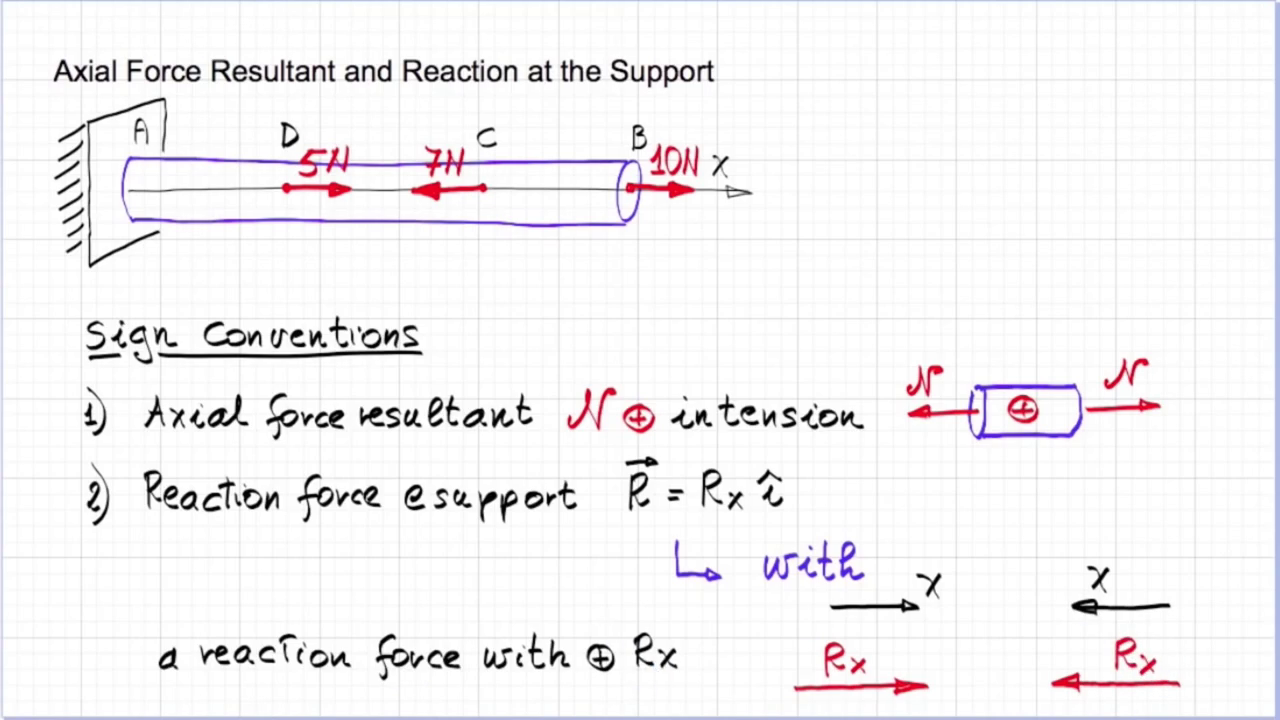 Axial Force Resultant and Reaction at the Support
A D C B
5N 7N 10N X
Sign Conventions
1) Axial force resultant N ⊕ in tension N ⊕ N
2) Reaction force @ support R⃗ = Rx î
↳ with x x
a reaction force with ⊕ Rx Rx Rx